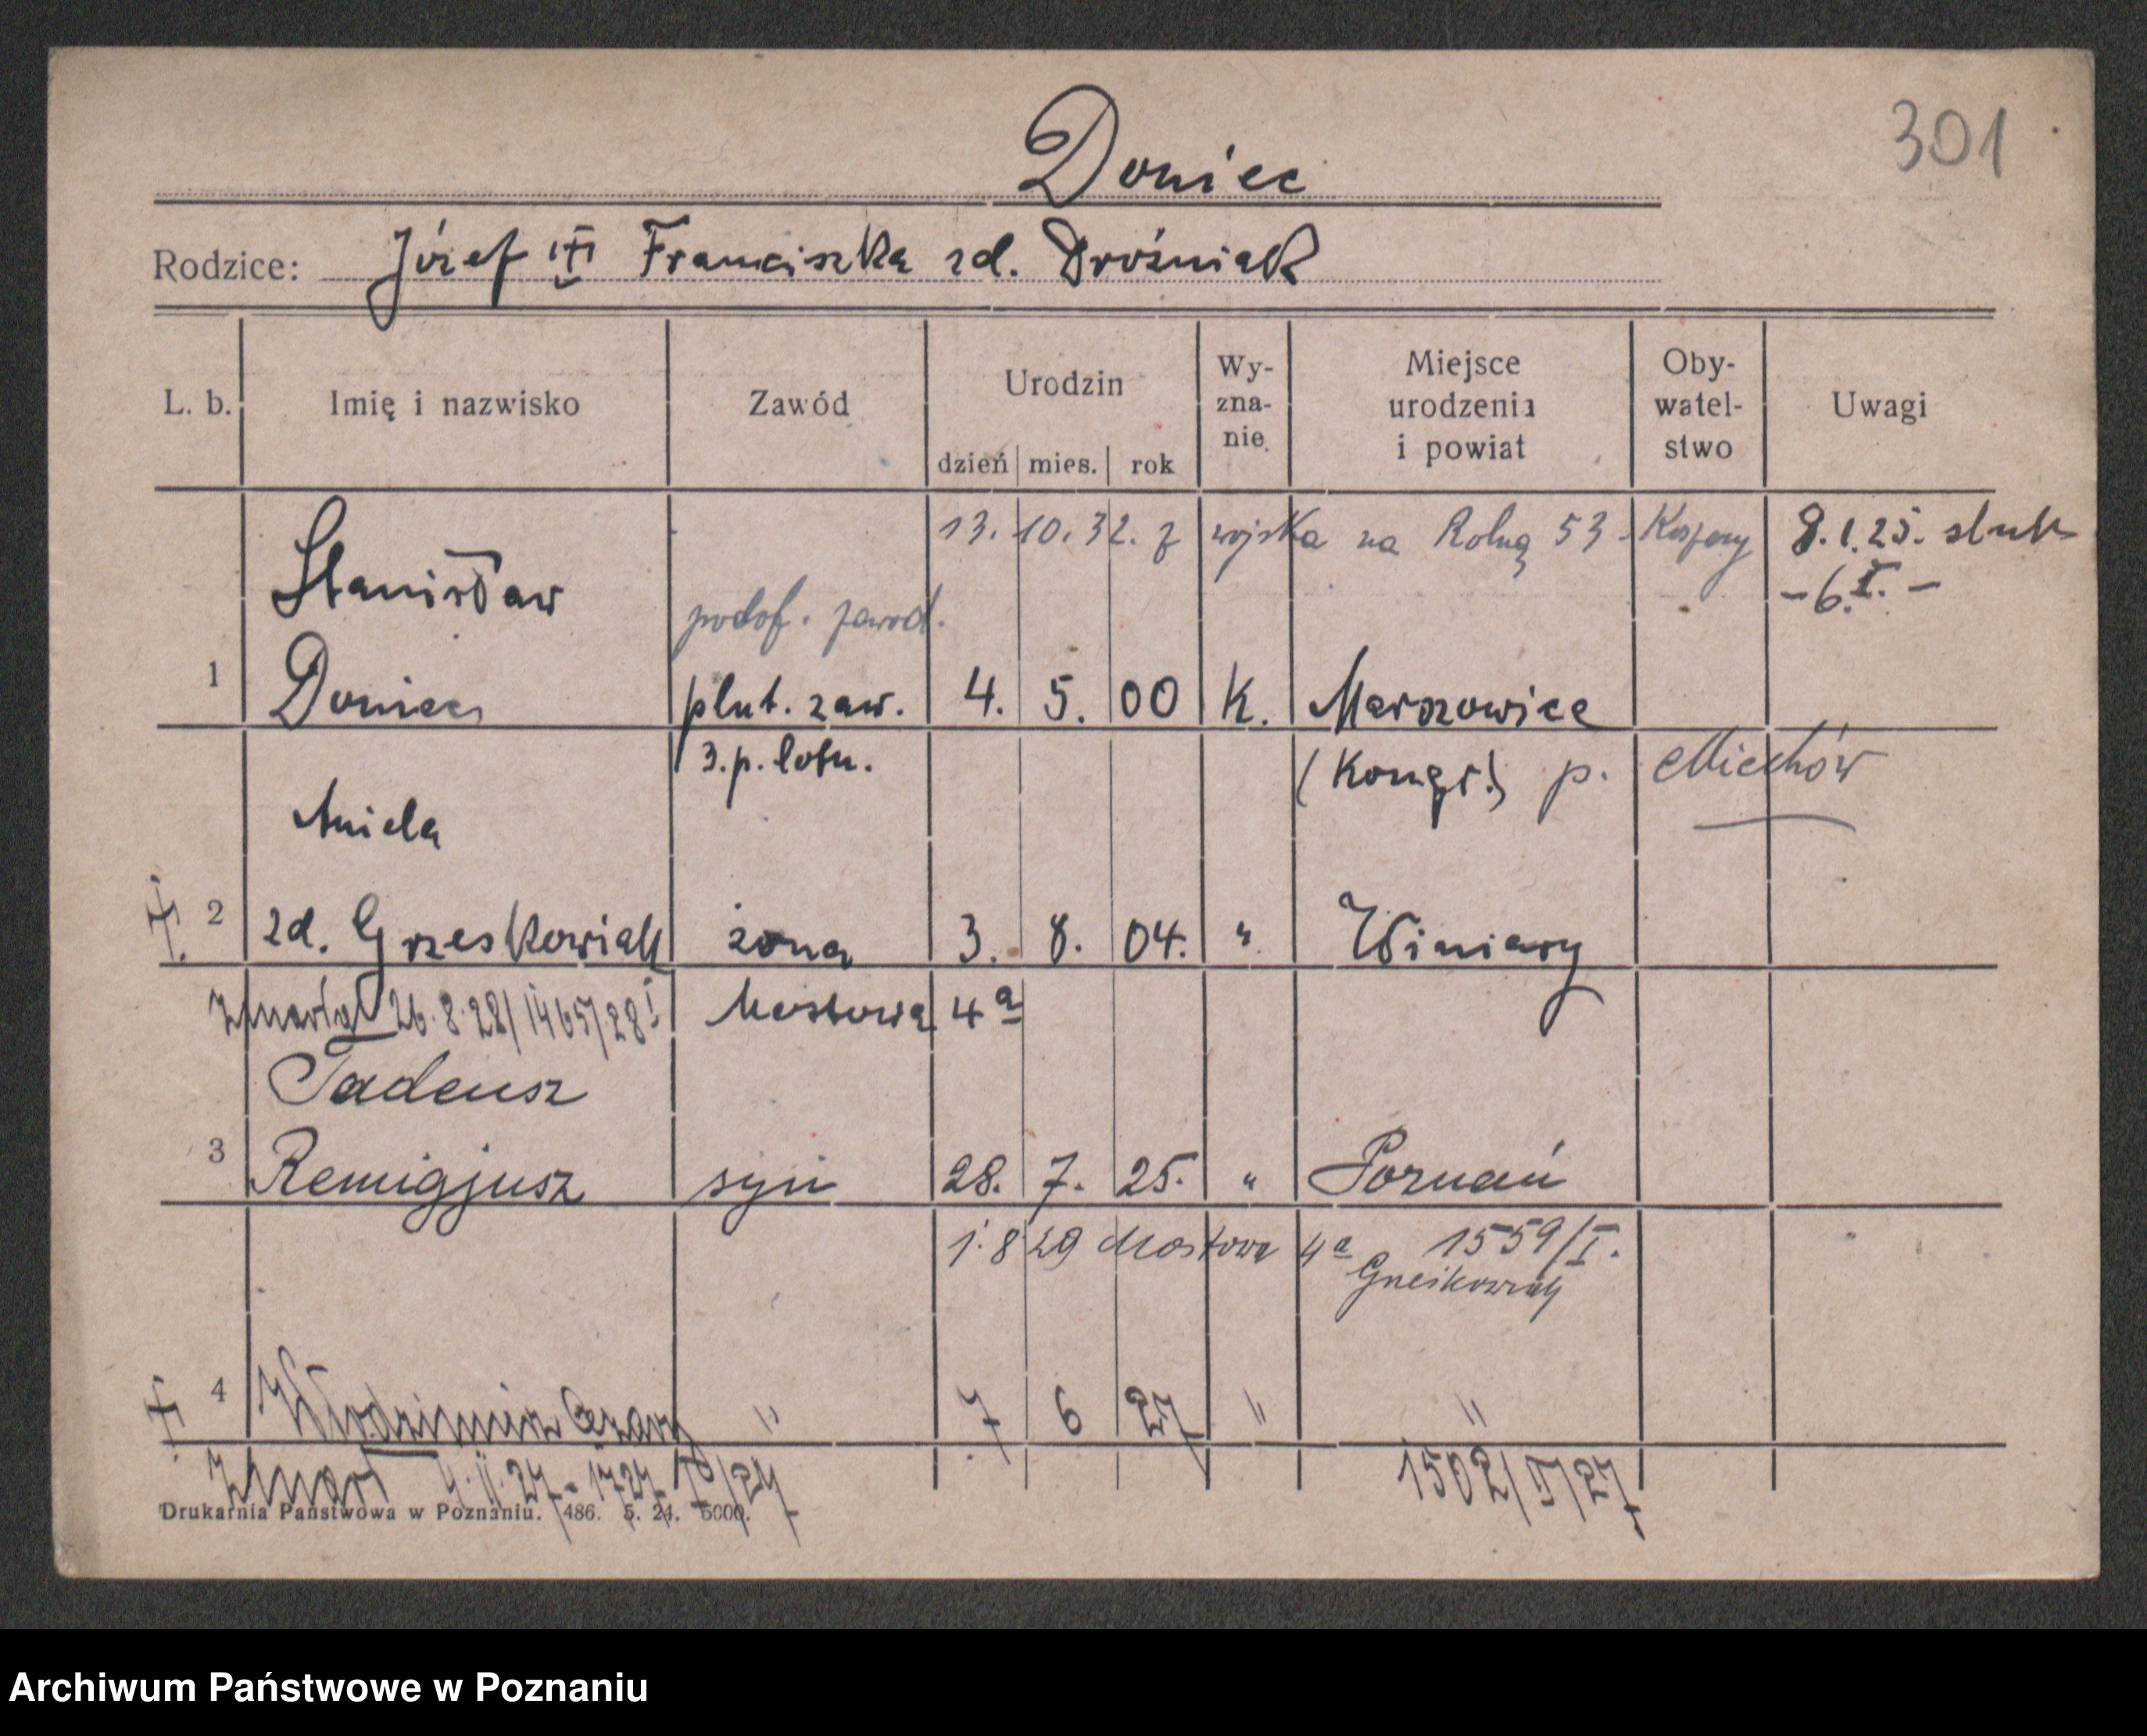 301
Doniec
Rodzice: Józef i Franciszka zd. Droźniak
L. b. Imię i nazwisko Zawód Urodzin dzień mies. rok Wy-zna-nie Miejsce urodzenia i powiat Oby-watel-stwo Uwagi
13. 10. 32. z wojska na Rolną 53 8. 1. 25. slub
- 6. I. -
Stanisław podof. zawod.
1 Doniec plut. zaw. 4. 5. 00 K. Marszowice
3. p. lotn. (Kongr.) p. Miechów
Aniela
2 zd. Grześkowiak żona 3. 8. 04. " Winiary
Zmarła 26.8.28/1465/28 I Mostowa 4a
Tadeusz
3 Remigjusz syn 28. 7. 25. " Poznań
1. 8 29 Mostowa 4a 1559/I.
4 Włodzimierz Cezary " 7 6 27 " "
Zmarł 1502/V/27
Drukarnia Państwowa w Poznaniu. 486. 5. 24. 5000.
Archiwum Państwowe w Poznaniu